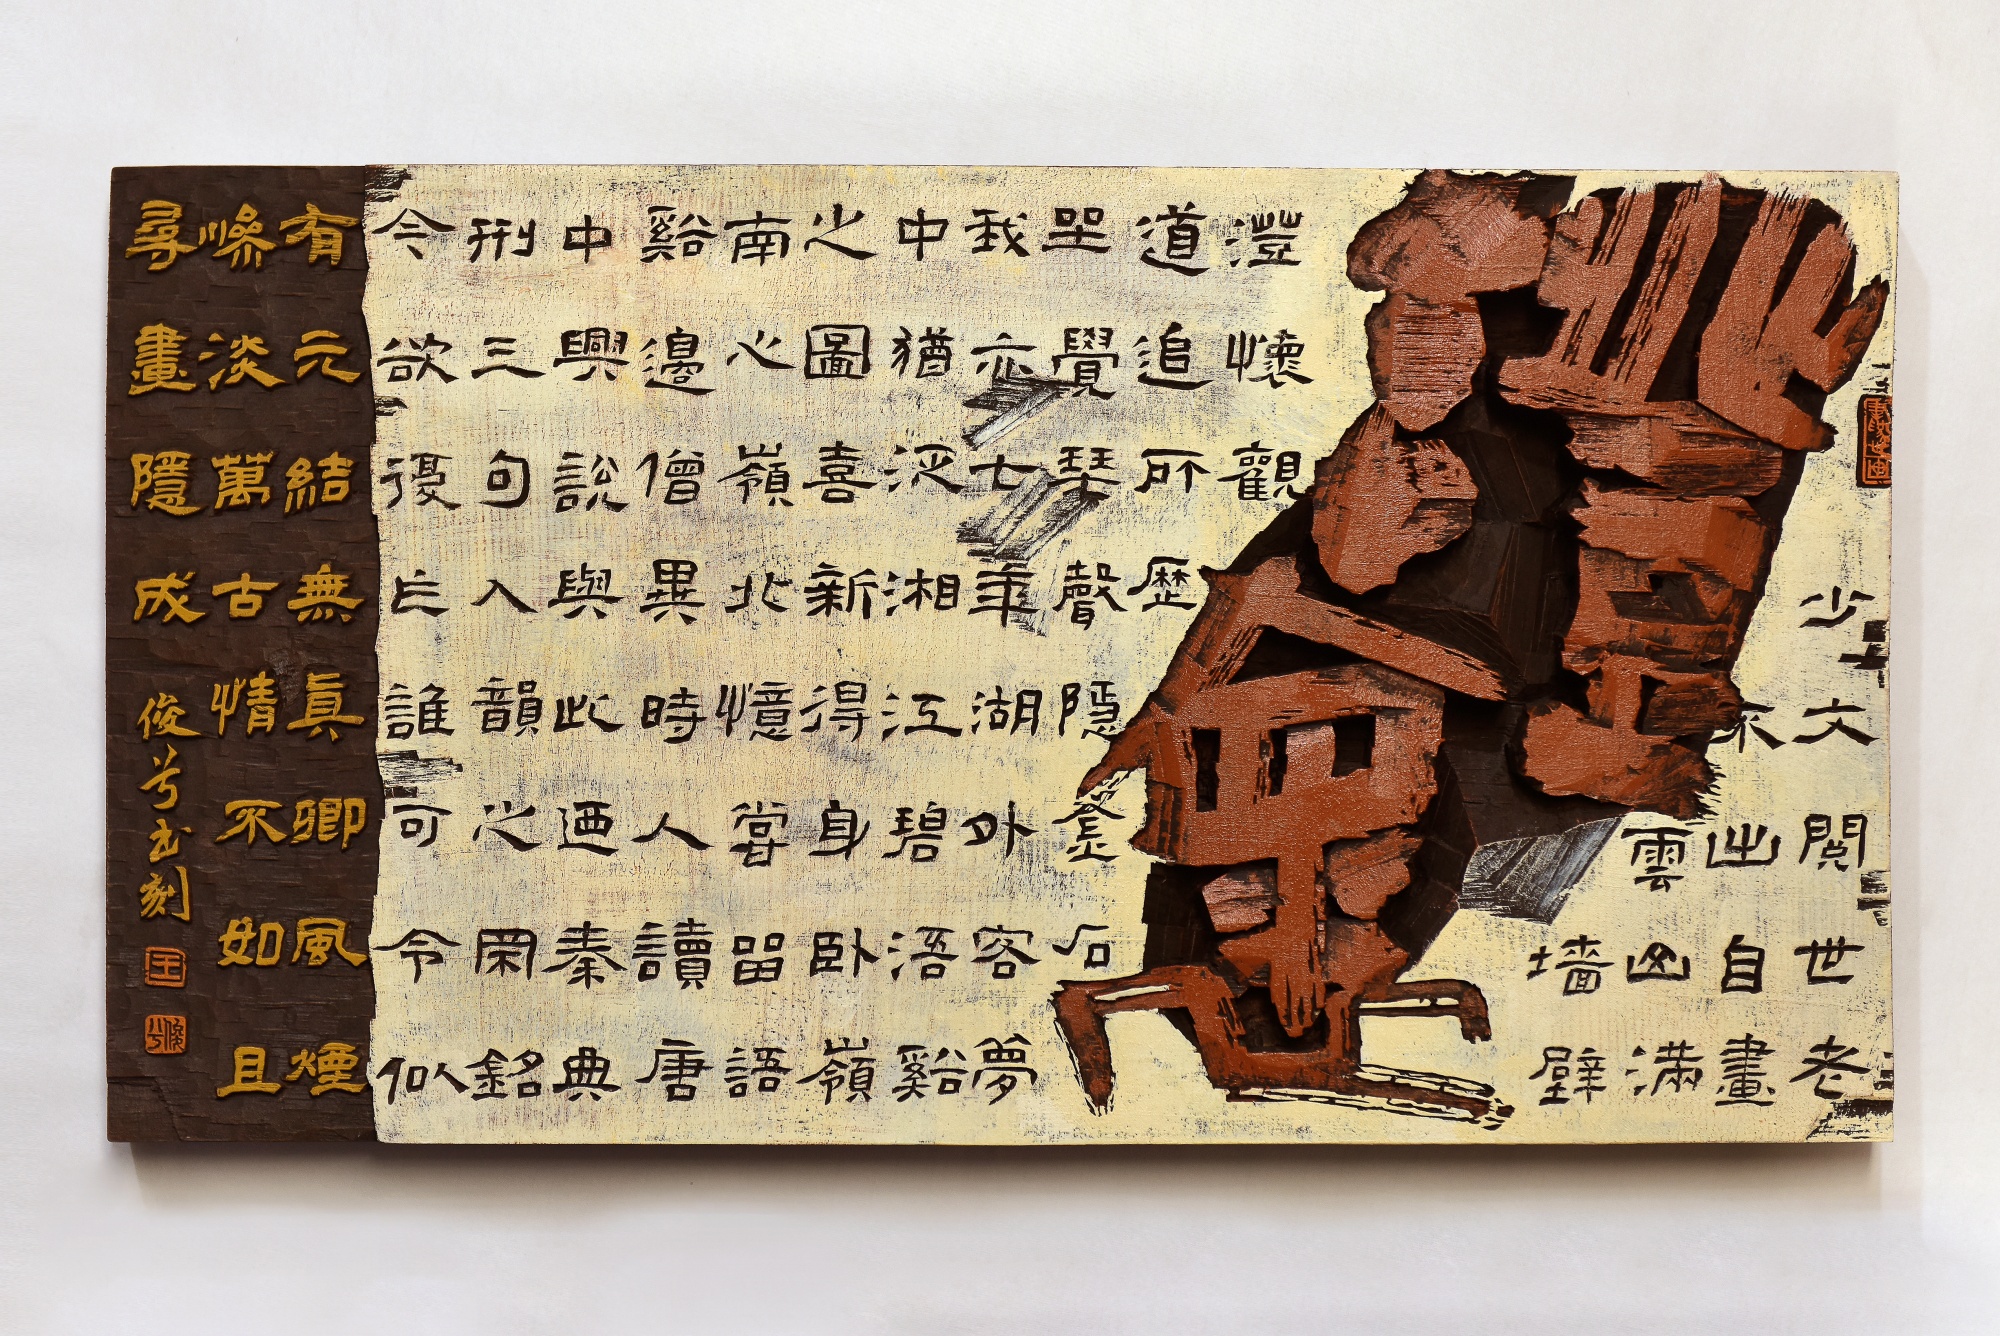 少文閱世老
不出自畫
雲山滿
墻壁
澄懷觀
道追所歷
坐覺琴聲隱金石
我亦七年湖外客夢
中猶泛湘江碧浯谿
之圖喜新得身臥嶺
南心嶺北憶當留語
谿邊僧異時人讀唐
中興說與此迺秦典
刑三句入韻之罔銘
今欲擾亡誰可令似
有元結無真卿風煙
慘淡萬古情不如且
尋畫隱成
俊兮書刻
王
俊兮